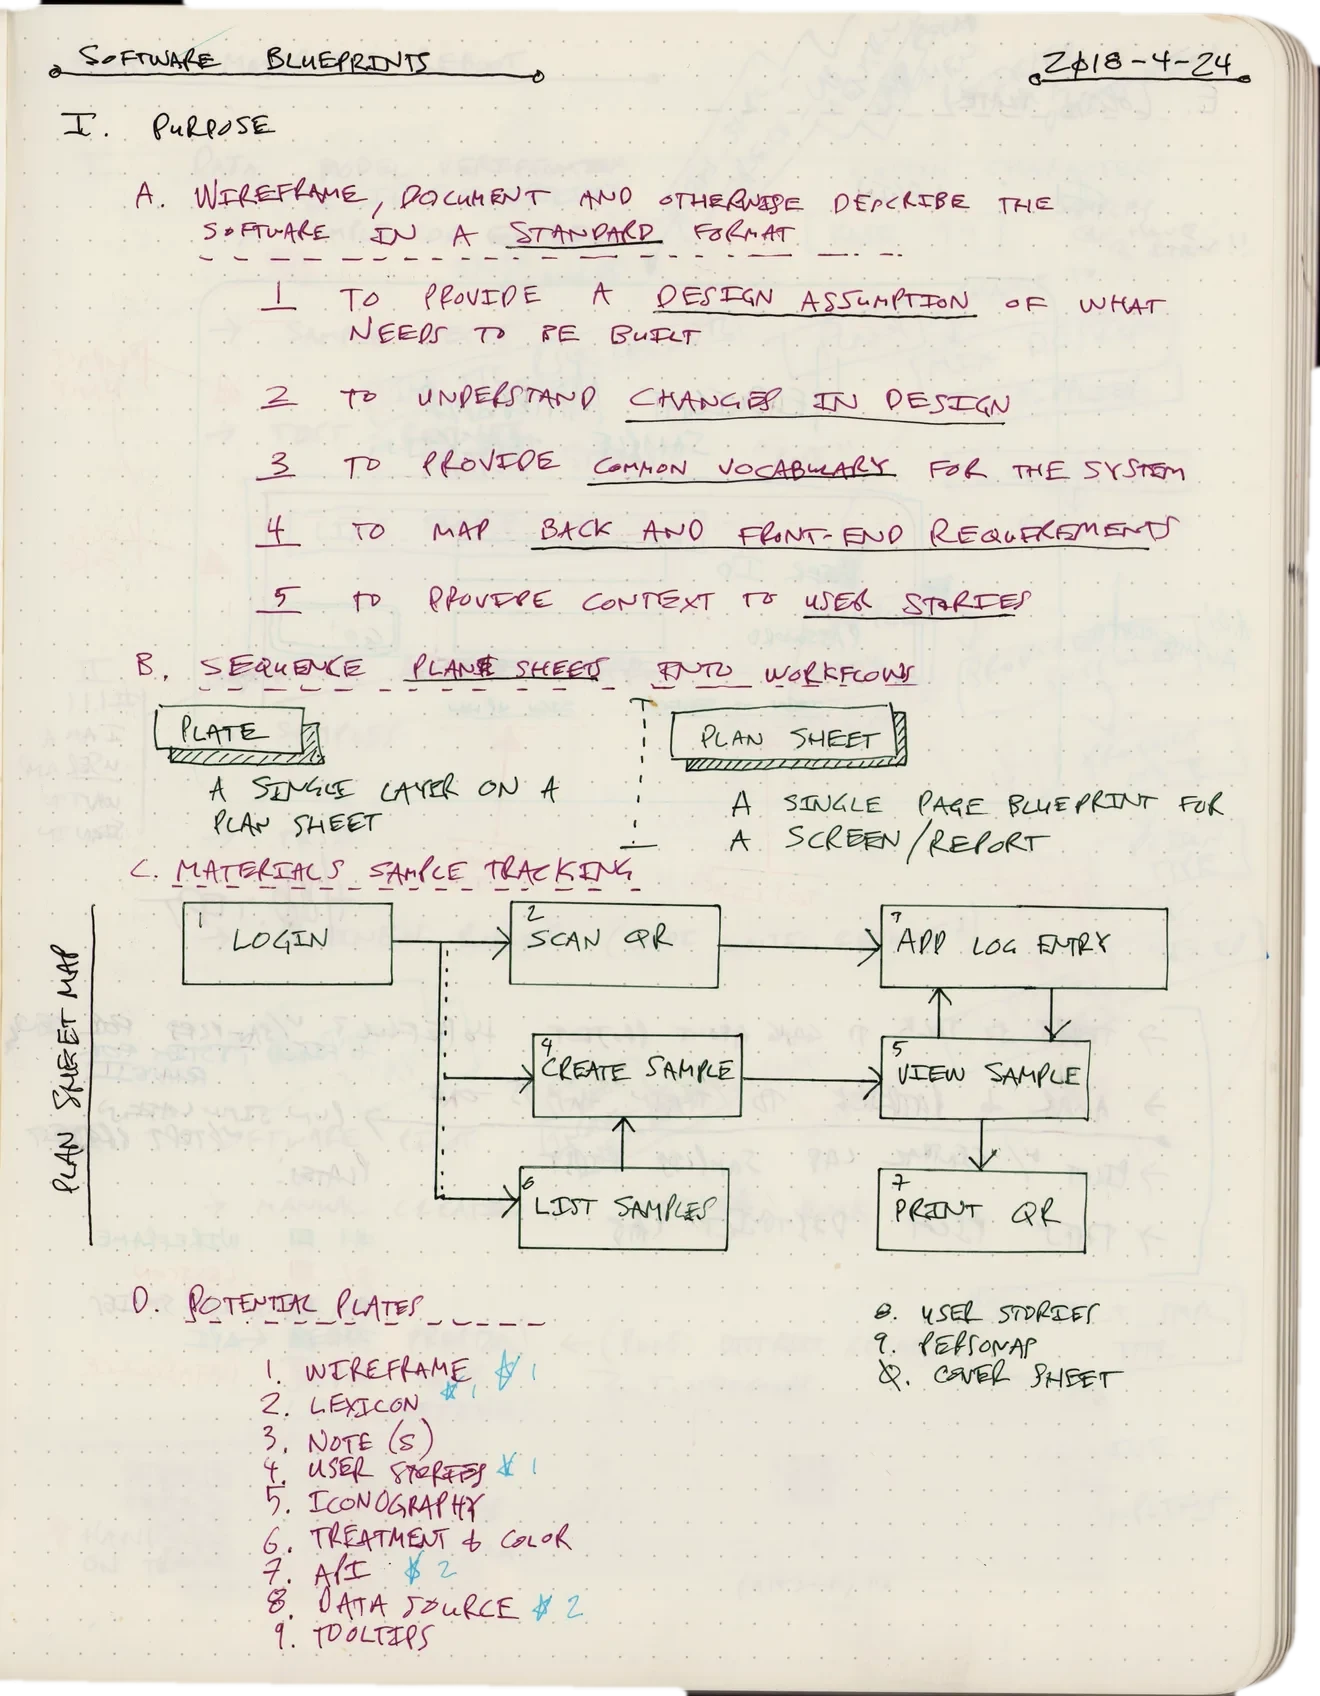 SOFTWARE BLUEPRINTS
2018-4-24
I. PURPOSE
A. WIREFRAME, DOCUMENT AND OTHERWISE DESCRIBE THE
SOFTWARE IN A STANDARD FORMAT
1 TO PROVIDE A DESIGN ASSUMPTION OF WHAT
NEEDS TO BE BUILT
2 TO UNDERSTAND CHANGES IN DESIGN
3 TO PROVIDE COMMON VOCABULARY FOR THE SYSTEM
4 TO MAP BACK AND FRONT-END REQUIREMENTS
5 TO PROVIDE CONTEXT TO USER STORIES
B. SEQUENCE PLAN SHEETS INTO WORKFLOWS
PLATE
A SINGLE LAYER ON A
PLAN SHEET
PLAN SHEET
A SINGLE PAGE BLUEPRINT FOR
A SCREEN/REPORT
C. MATERIALS SAMPLE TRACKING
PLAN SHEET MAP
1 LOGIN
2 SCAN QR
ADD LOG ENTRY
4 CREATE SAMPLE
5 VIEW SAMPLE
6 LIST SAMPLES
7 PRINT QR
D. POTENTIAL PLATES
1. WIREFRAME 1
2. LEXICON 1
3. NOTE(S)
4. USER STORIES 1
5. ICONOGRAPHY
6. TREATMENT & COLOR
7. API 2
8. DATA SOURCE 2
9. TOOLTIPS
8. USER STORIES
9. PERSONAS
COVER SHEET